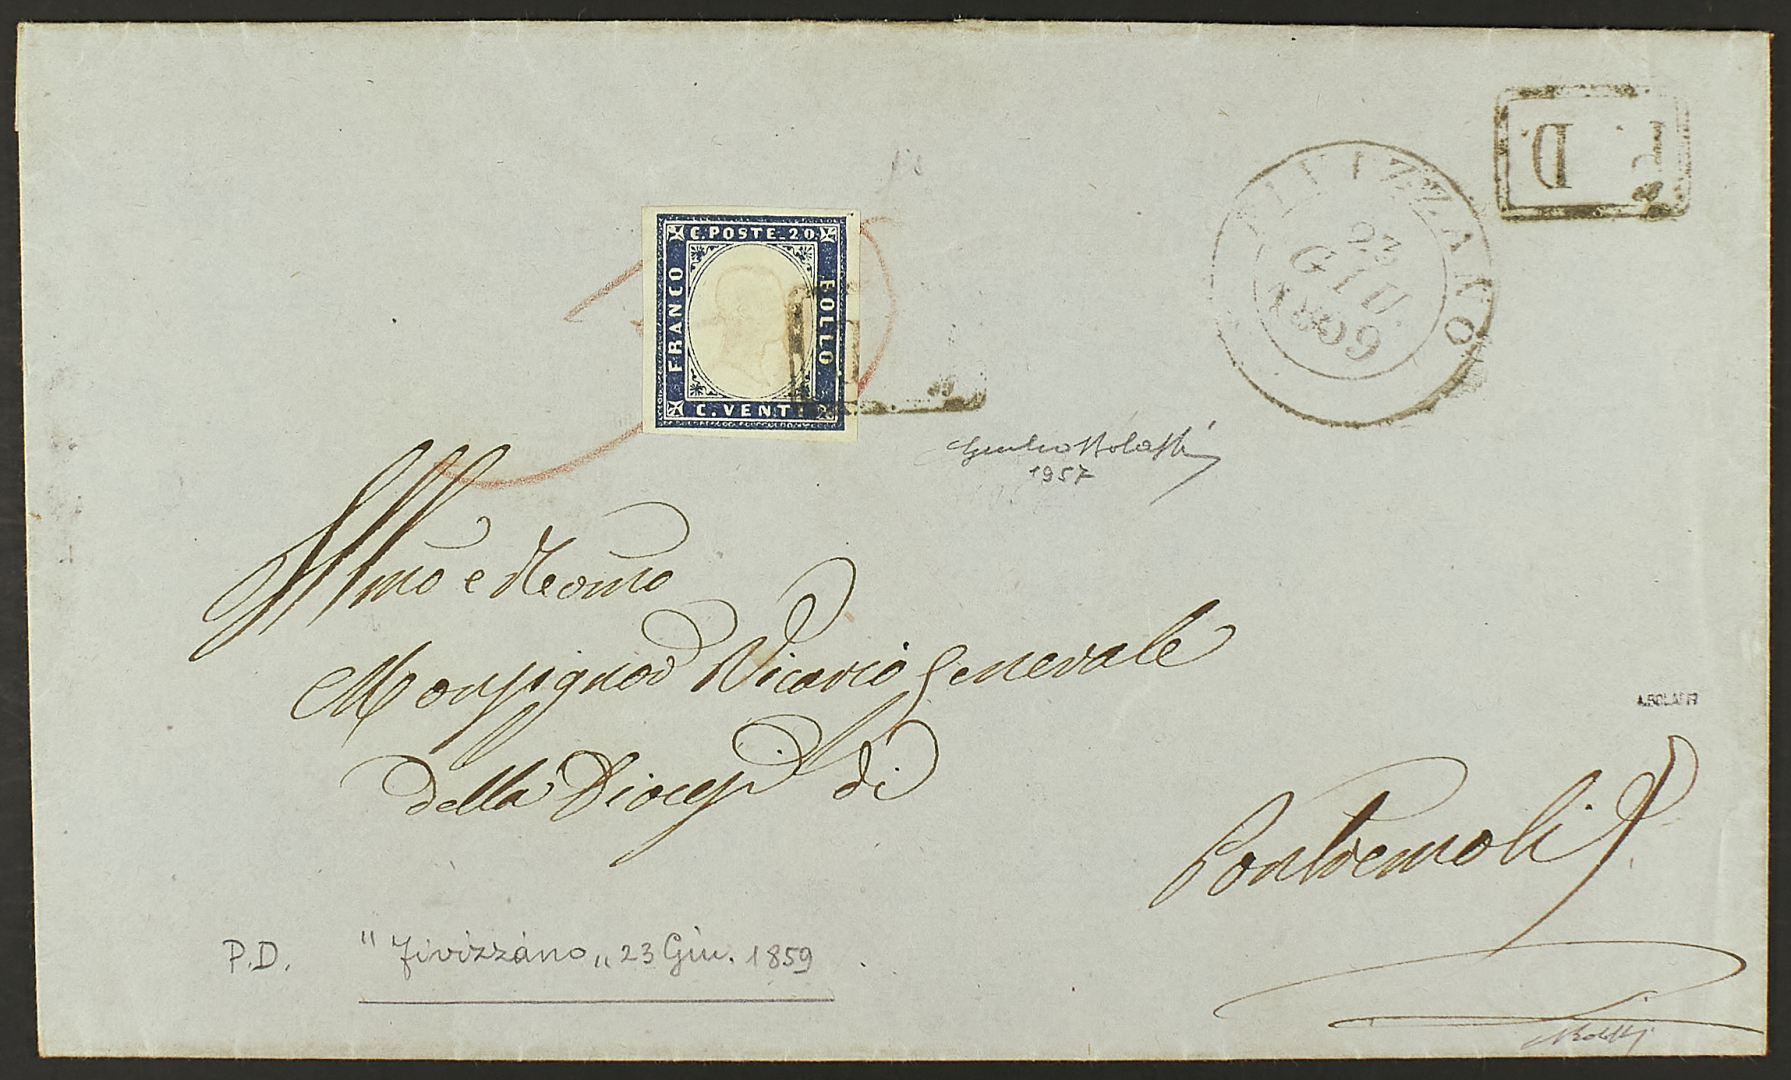 P. D.
FIVIZZANO
23
GIU.
1859
C. POSTE. 20
FRANCO
BOLLO
C. VENTI
Giulio Bolaffi
1957
Illmo e Rev͠mo
Monsignor Vicario Generale
della Diocesi di
A.BOLAFFI
Pontremoli
P.D. "Fivizzano" 23 Giu. 1859